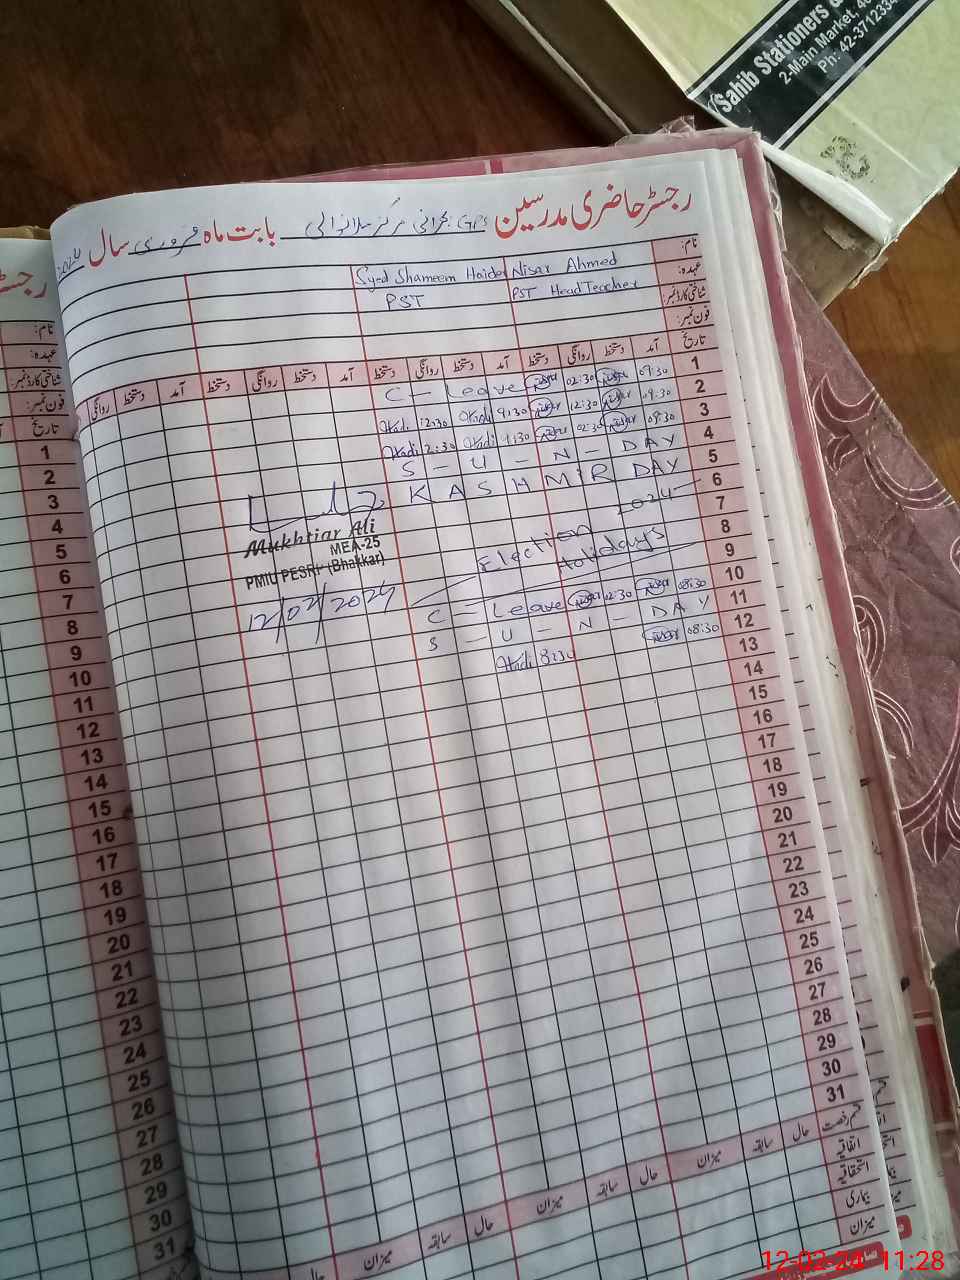 Sahib Stationers &
2-Main Market, 4
Ph: 42-3712334
رجسٹر حاضری مدرسین GPS بحرانی مرکز بابت ماہ فروری سال 2024
نام: Nisar Ahmed Syed Shameem Haider
عہدہ: PST Head Teacher PST
شناختی کارڈ نمبر:
فون نمبر:
تاریخ آمد دستخط روانگی دستخط آمد دستخط روانگی دستخط آمد دستخط روانگی دستخط
1 09:30 Nisar 02:30 Nisar C - Leave
2 Nisar 12:30 Nisar 9:30 Hadi 12:30 Hadi
3 Nisar 02:30 Nisar 9:30 Hadi 2:30 Hadi
4 S - U - N - DAY
5 KASHMIR DAY
6
7 Election 2024
8 Holidays
9
10 08:30 Nisar 12:30 Nisar C - Leave
11 S - U - N - DAY
12 08:30 Nisar 8:30 Hadi
13
14
15
16
17
18
19
20
21
22
23
24
25
26
27
28
29
30
31
Mukhtiar Ali
MEA-25
PMIU PESRP (Bhakkar)
12/02/2024
قسم رخصت حال سابقہ میزان حال سابقہ میزان حال سابقہ میزان حال
اتفاقیہ
استحقاقیہ
بیماری
میزان
رجسٹر
نام:
عہدہ:
شناختی کارڈ نمبر:
فون نمبر:
تاریخ
1
2
3
4
5
6
7
8
9
10
11
12
13
14
15
16
17
18
19
20
21
22
23
24
25
26
27
28
29
30
31
12-02-24 11:28